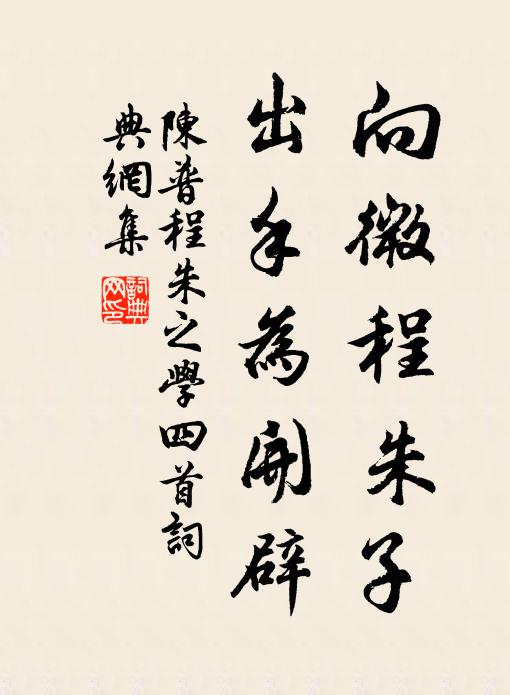 向微程朱子
出手為開辟
陳普程朱之學四首詞
典網集
詞典
网印